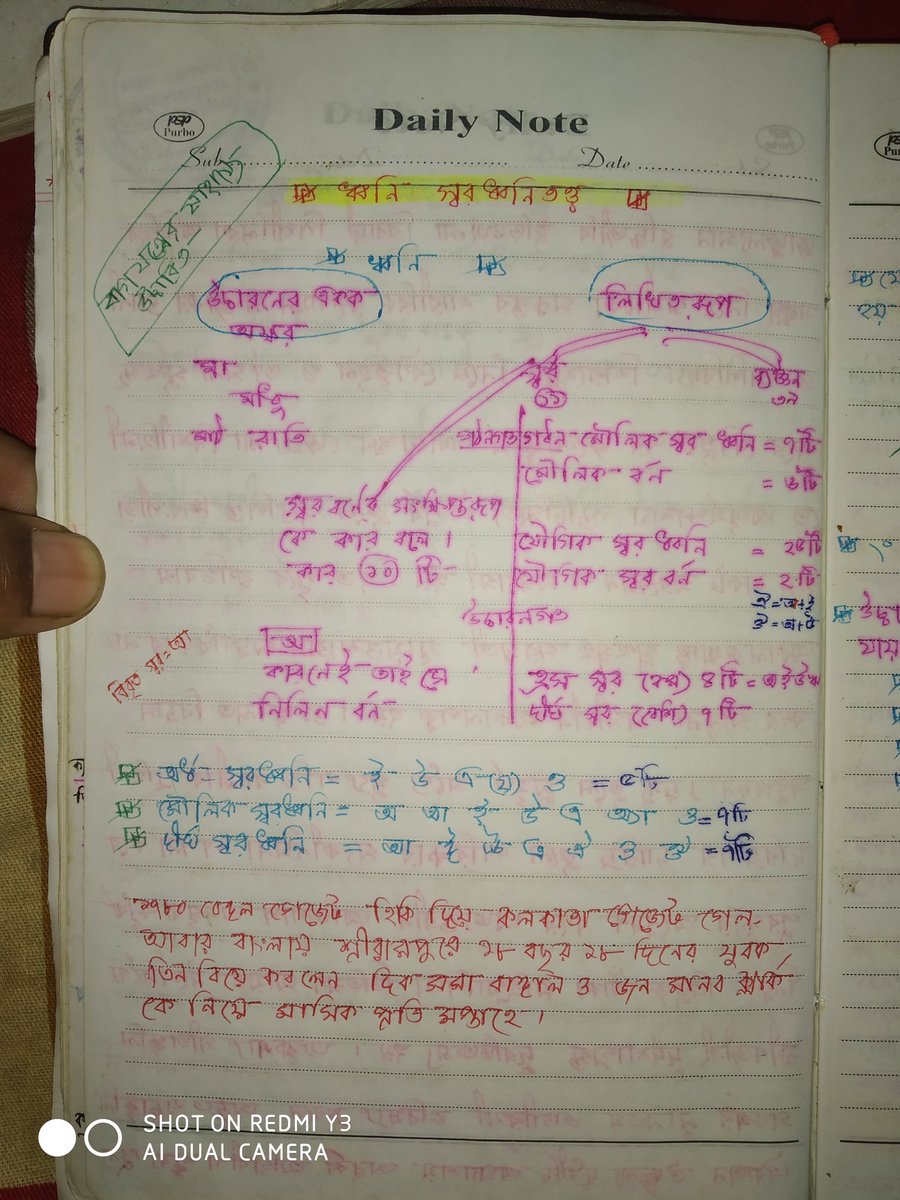 PSP Purbo
Daily Note
Sub: Date
ধ্বনি স্বরধ্বনিতত্ত্ব
বাগযন্ত্রের সাহায্যে
উচ্চারিত
ধ্বনি
উচারনের একক
অক্ষর
লিখিতরূপ
মা
মধু
রাতি
স্বর
১১
ব্যঞ্জন
৩৯
গঠন মৌলিক স্বর ধ্বনি = ৭টি
মৌলিক বর্ন = ৬টি
স্বর বর্নের সংক্ষিপ্তরূপ
কে কার বলে।
কার ১০ টি
যৌগিক স্বর ধ্বনি = ২৫টি
যৌগিক স্বর বর্ন = ২টি
ঐ = অ+ই
ঔ = অ+উ
উচারনগত
বিবৃত স্বর = আ
অ
কারনেই তাই সে
নিলিন বর্ন
হ্রস স্বর (কম) ৪টি = অ ই উ ঋ
দীর্ঘ স্বর (বেশি) ৭টি
অর্ধ স্বরধ্বনি = ই উ এ (য়) ও = ৫টি
মৌলিক স্বরধ্বনি = অ আ ই উ এ অ্যা ও = ৭টি
দীর্ঘ স্বরধ্বনি = আ ঈ ঊ এ ঐ ও ঔ = ৭টি
১৭৮০ বেঙ্গল গেজেট হিকি দিয়ে কলকাতা গেজেট গেল
আবার বাংলায় শ্রীরামপুরে ১৮ বছর ১৮ দিনের যুবক
তিন বিয়ে করলেন দিক সমা বাঙ্গাল ও জন মানব ক্লার্ক
কে নিয়ে মাসিক প্রতি সপ্তাহে।
SHOT ON REDMI Y3
AI DUAL CAMERA